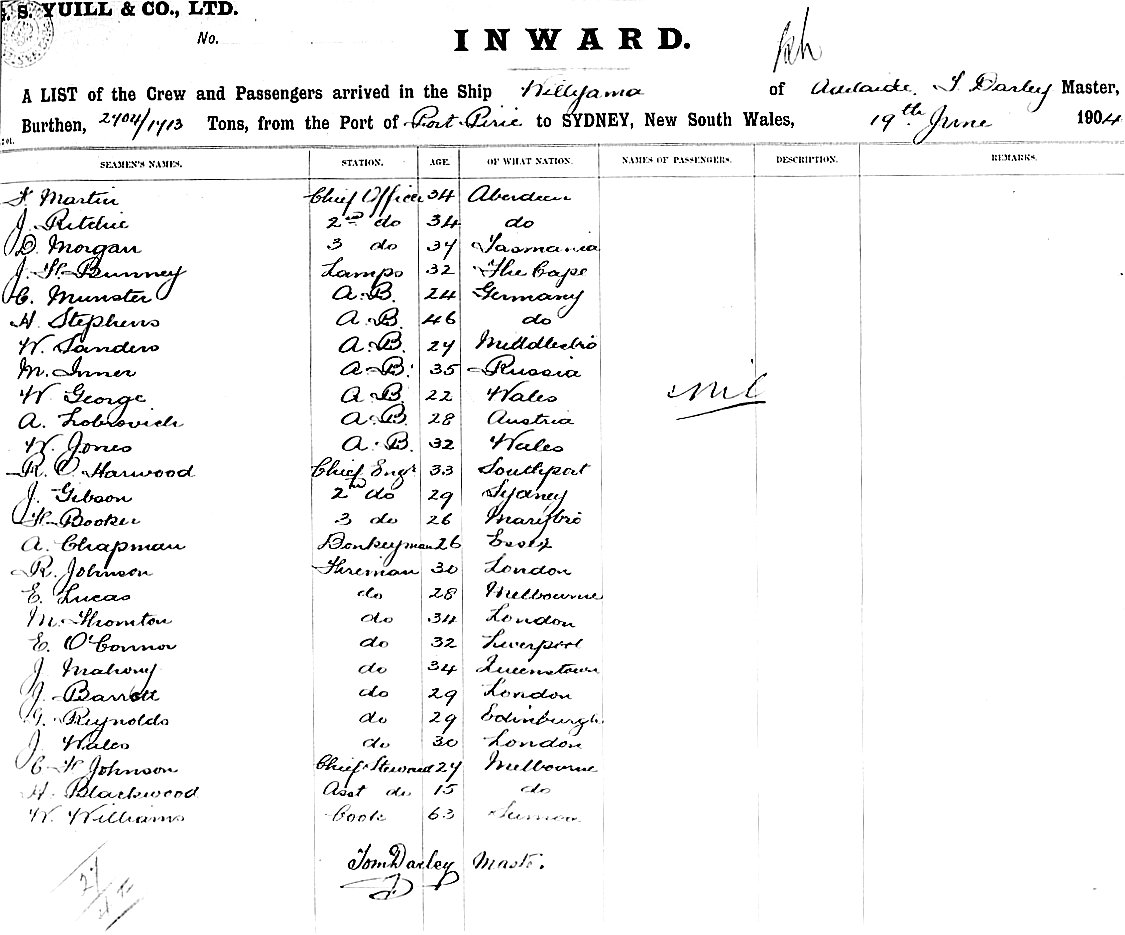 . S. YUILL & CO., LTD.
No.
INWARD.
A LIST of the Crew and Passengers arrived in the Ship Willyama of Adelaide, T Darley Master,
Burthen, 2704/1713 Tons, from the Port of Port Pirie to SYDNEY, New South Wales, 19th June 1904
SEAMEN'S NAMES. STATION. AGE. OF WHAT NATION. NAMES OF PASSENGERS. DESCRIPTION. REMARKS.
F Martin Chief Officer 34 Aberdeen
J. Ritchie 2nd do 34 do
D. Morgan 3 do 37 Tasmania
J. H. Bunney Lamps 32 The Cape
C. Munster A.B. 24 Germany
H. Stephens A.B. 46 do
W. Sanders A.B. 27 Middlesbro
M. Inner A.B. 35 Russia
W. George A.B. 22 Wales
nil
A. Lobrovich A.B. 28 Austria
W. Jones A.B. 32 Wales
R. O. Harwood Chief Engr 33 Southport
J. Gibson 2nd do 29 Sydney
H. Booker 3 do 26 Marybro
A. Chapman Donkeyman 26 Essex
R. Johnson Fireman 30 London
E. Lucas do 28 Melbourne
M. Thornton do 34 London
E. O'Connor do 32 Liverpool
J Mahony do 34 Queenstown
J. Barrett do 29 London
G. Reynolds do 29 Edinburgh
J. Wales do 30 London
C H Johnson Chief Steward 27 Melbourne
H. Blackwood Asst do 15 do
W. Williams Cook 63
Tom Darley Mastr.
27